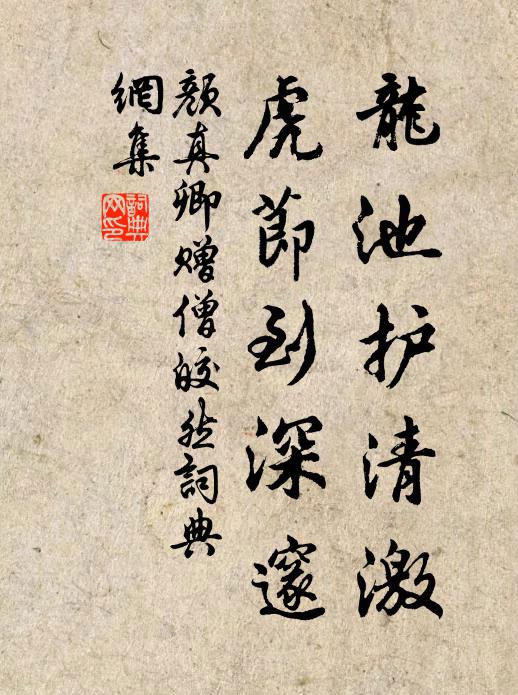 龍池护清激
虎節到深邃
顔真卿赠僧皎然詞典
網集
詞典
网印